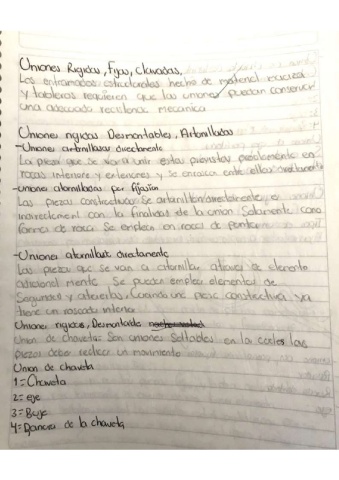 Uniones Rigidas, fijas, Clavadas,
Los entramados estructurales hecho de material
y tableros requieren que las uniones puedan conservar
una adecuada resistencia mecanica
Uniones rigidas Desmontables, Atornilladas
-Uniones atornilladas directamente
La pieza que se van a unir estan provistas previamente en
roscas interiores y exteriores y se enroscan entre ellas directamente
-uniones atornilladas por fijación
Las piezas constructivas Se directamente o
indirectament con la finalidad de la union Solamente como
formas de rosca Se emplean en roscas de
-Uniones atornillada directamente
Las piezas que se van a atornillar atraves de elemento
adicional mente Se pueden emplea elementos de
Seguridad y Cuando una pieza constructiva ya
tiene un roscado interno
Uniones rigidas, Desmontable
Union de chaveta: Son uniones en la cuales las
piezas deber realicer un movimiento
Union de chaveta
1= Chaveta
2= eje
3= Buje
4= de la chaveta